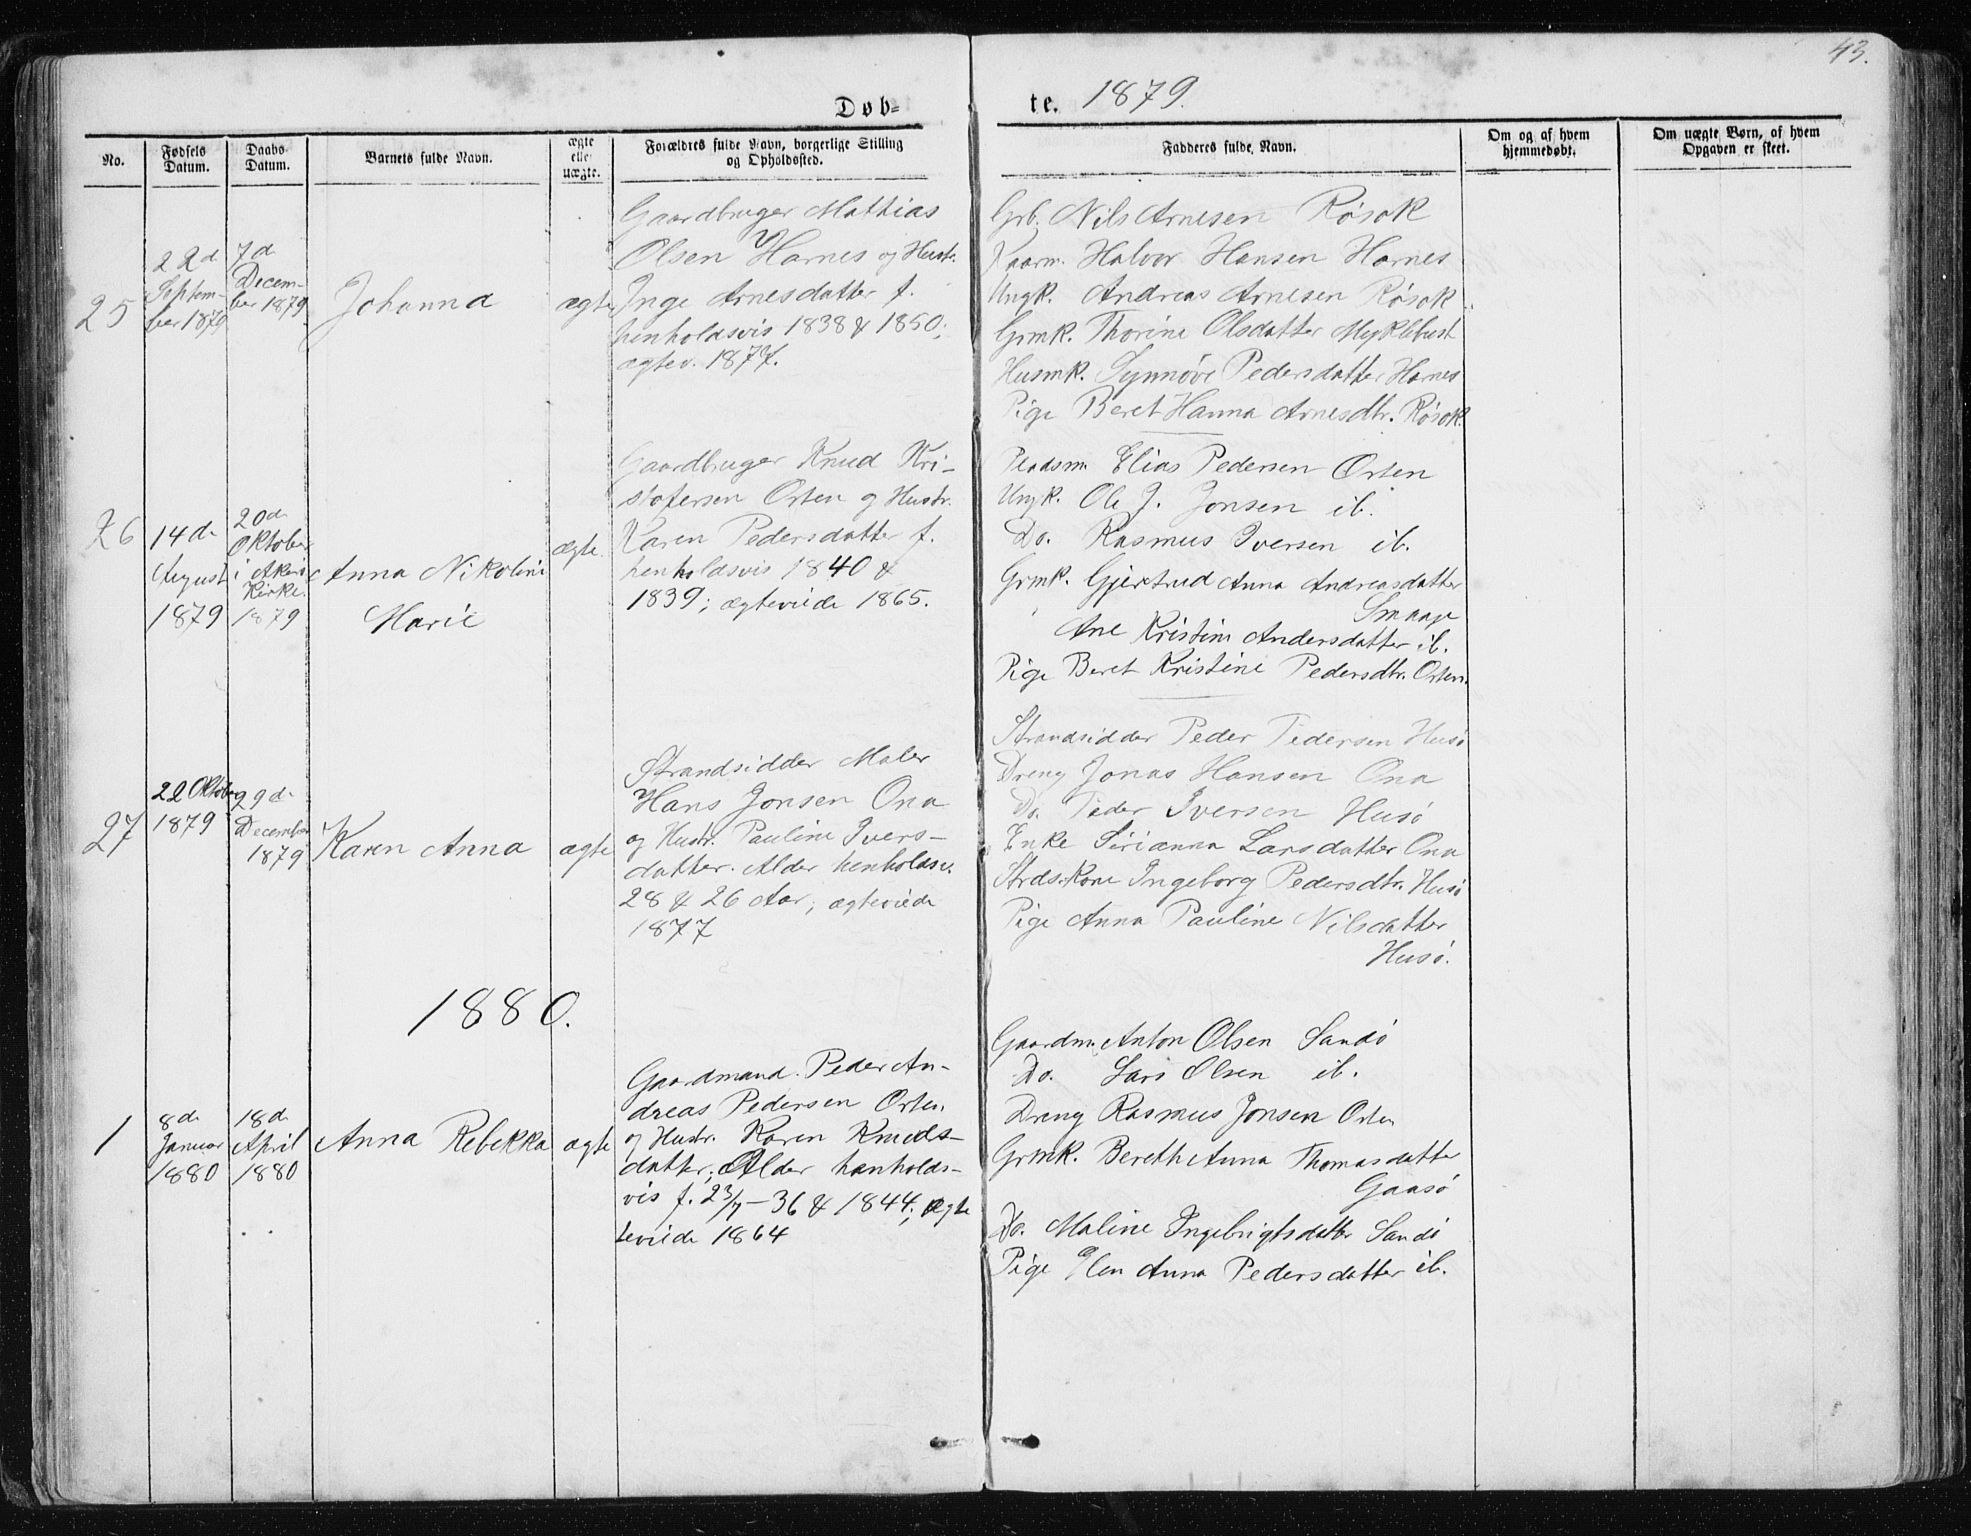 43.
Døb=
te. 1879.
No.
Fødsels Datum.
Daabs Datum.
Barnets fulde Navn.
ægte eller uægte.
Forældres fulde Navn, borgerlige Stilling og Opholdssted.
Fadderes fulde Navn.
Om og af hvem hjemmedøbt.
Om uægte Børn, af hvem Opgaven er skeet.
25
22d
Septem-
ber 1879
7d
Decem-
ber 1879
Johanna
ægte
Gaardbruger Mathias
Olsen Harnes og Hustr.
Inge Arnesdatter f.
henholdsvis 1838 & 1850;
ægtev. 1877.
Grb. Nils Arnesen Røsok
Kaarm. Halvor Hansen Harnes
Ungk. Andreas Arnesen Røsok
Grmk. Thorine Olsdatter Myklebust
Husmk. Synnøve Pedersdatter Harnes
Pige Beret Hanna Arnesdtr. Røsok.
26
14d
August
1879
20d
Oktober
i Akerø
Kirke.
1879
Anna Nikoline
Marie
ægte
Gaardbruger Knud Kri-
stofersen Orten og Hustr.
Karen Pedersdatter f.
henholdsvis 1840 &
1839; ægteviede 1865.
Pladsm. Elias Pedersen Orten
Ungk. Ole J. Jonsen ib.
Do. Rasmus Iversen ib.
Grmk. Gjertrud Anna Andreasdatter
Smaage
Ane Kristine Andersdatter ib.
Pige Beret Kristine Pedersdtr. Orten.
27
22 Oktober
1879
29d
December
1879
Karen Anna
ægte
Strandsidder Maler
Hans Jonsen Ona
og Hustr. Pauline Ivers-
datter. Alder henholdsv.
28 & 26 Aar; ægteviede
1877
Strandsidder Peder Pedersen Husø
Dreng Jonas Hansen Ona
Do. Peder Iversen Husø
Enke Sirianna Larsdatter Ona
Strds.kone Ingeborg Pedersdtr. Husø
Pige Anna Pauline Nilsdatter
Husø.
1880.
1
8d
Januar
1880
18d
April
1880
Anna Rebekka
ægte
Gaardmand Peder An-
dreas Pedersen Orten
og Hustr. Karen Knuds-
datter; Alder henholds-
vis f. 23/7-36 & 1844; ægte
teviede 1864
Gaardm. Anton Olsen Sandø
Do. Lars Olsen ib.
Dreng Rasmus Jonsen Orten
Grmk. Bereth Anna Thomasdatter
Gaasø
Do. Maline Ingebrigtsdatter Sandø
Pige Elen Anna Pedersdatter ib.